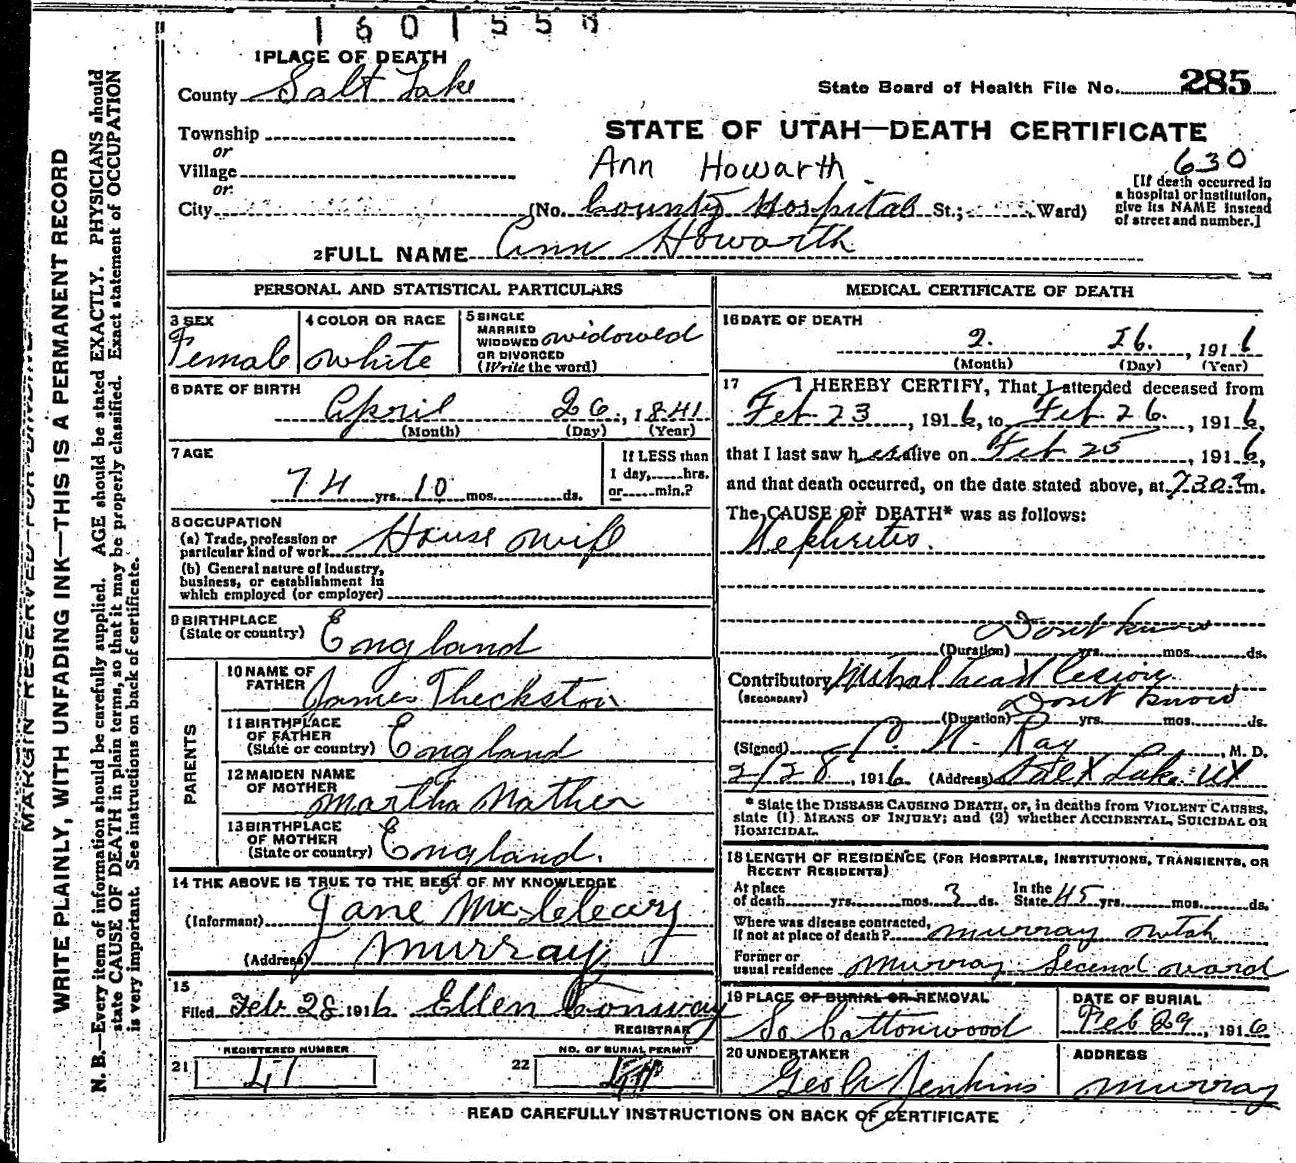 1601558
1 PLACE OF DEATH
County Salt Lake
State Board of Health File No. 285
Township
or
Village
or
City
STATE OF UTAH—DEATH CERTIFICATE
Ann Howarth
630
(No. County Hospital St.; Ward)
[If death occurred in
a hospital or institution,
give its NAME instead
of street and number.]
2 FULL NAME Ann Howarth
PERSONAL AND STATISTICAL PARTICULARS
3 SEX
Female
4 COLOR OR RACE
White
5 SINGLE
MARRIED
WIDOWED
OR DIVORCED
(Write the word)
widowed
6 DATE OF BIRTH
April 26, 1841
(Month) (Day) (Year)
7 AGE
74 yrs. 10 mos. ds.
If LESS than
1 day, hrs.
or min.?
8 OCCUPATION
(a) Trade, profession or
particular kind of work House wife
(b) General nature of industry,
business, or establishment in
which employed (or employer)
9 BIRTHPLACE
(State or country) England
PARENTS
10 NAME OF
FATHER James Theckston
11 BIRTHPLACE
OF FATHER
(State or country) England
12 MAIDEN NAME
OF MOTHER Martha Mather
13 BIRTHPLACE
OF MOTHER
(State or country) England.
14 THE ABOVE IS TRUE TO THE BEST OF MY KNOWLEDGE
(Informant) Jane McCleary
(Address) Murray
15
Filed Feb 28 1916 Ellen Conway
REGISTRAR
21 REGISTERED NUMBER
41
22 NO. OF BURIAL PERMIT
MEDICAL CERTIFICATE OF DEATH
16 DATE OF DEATH
2. 26., 1916
(Month) (Day) (Year)
17 I HEREBY CERTIFY, That I attended deceased from
Feb 23, 1916, to Feb 26., 1916,
that I last saw her alive on Feb 25, 1916,
and that death occurred, on the date stated above, at 730 a m.
The CAUSE OF DEATH* was as follows:
Nephritis.
Dont know
(Duration) yrs. mos. ds.
Contributory Mitral heart lesion
(SECONDARY)
Dont know
(Duration) yrs. mos. ds.
(Signed) P. N. Ray, M. D.
2/28, 1916 (Address) Salt Lake Ut
* State the DISEASE CAUSING DEATH, or, in deaths from VIOLENT CAUSES,
state (1) MEANS OF INJURY; and (2) whether ACCIDENTAL, SUICIDAL OR
HOMICIDAL.
18 LENGTH OF RESIDENCE (FOR HOSPITALS, INSTITUTIONS, TRANSIENTS, OR
RECENT RESIDENTS)
At place
of death yrs. mos. 3 ds. In the
State 45 yrs. mos. ds.
Where was disease contracted,
If not at place of death? Murray Utah
Former or
usual residence Murray Second ward
19 PLACE OF BURIAL OR REMOVAL
So Cottonwood
DATE OF BURIAL
Feb 29, 1916
20 UNDERTAKER
Geo A Jenkins
ADDRESS
Murray
READ CAREFULLY INSTRUCTIONS ON BACK OF CERTIFICATE
MARGIN RESERVED FOR BINDING
WRITE PLAINLY, WITH UNFADING INK—THIS IS A PERMANENT RECORD
N. B.—Every item of information should be carefully supplied. AGE should be stated EXACTLY. PHYSICIANS should
state CAUSE OF DEATH in plain terms, so that it may be properly classified. Exact statement of OCCUPATION
is very important. See instructions on back of certificate.